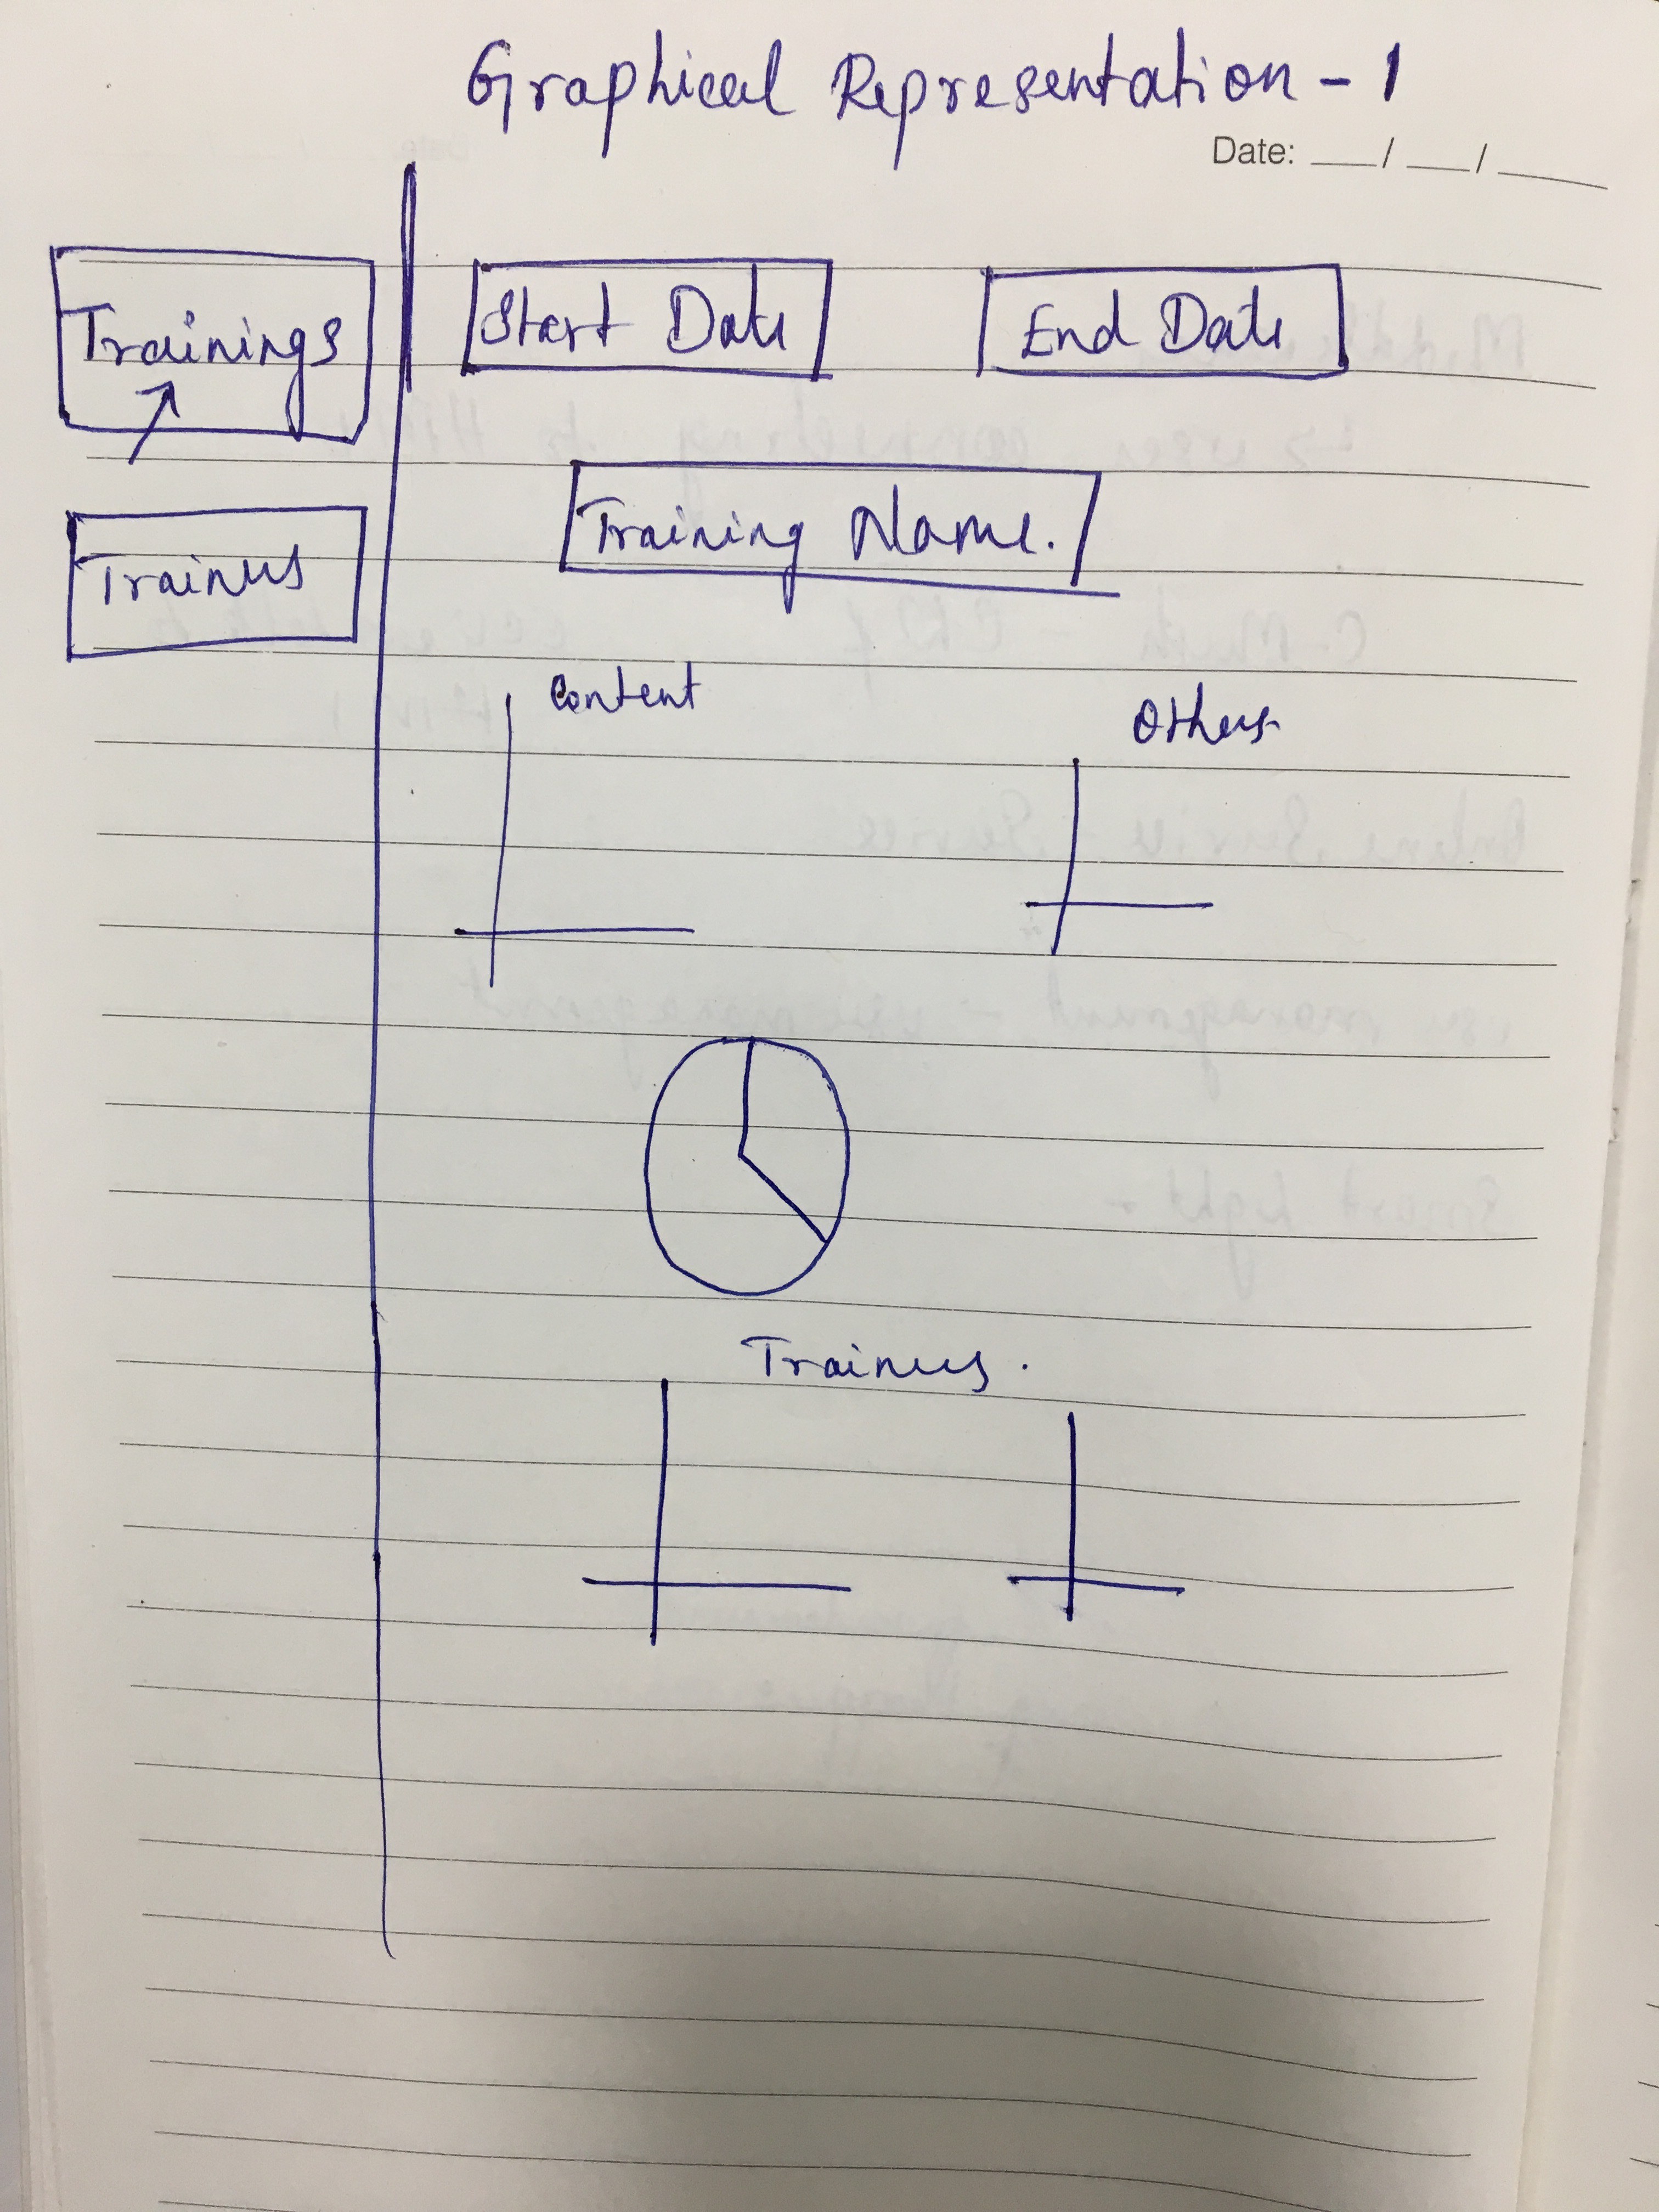 Graphical Representation - 1
Date: __/__/__
Trainings
Start Date
End Date
Training Name.
Trainers
Content
Others
Trainers.